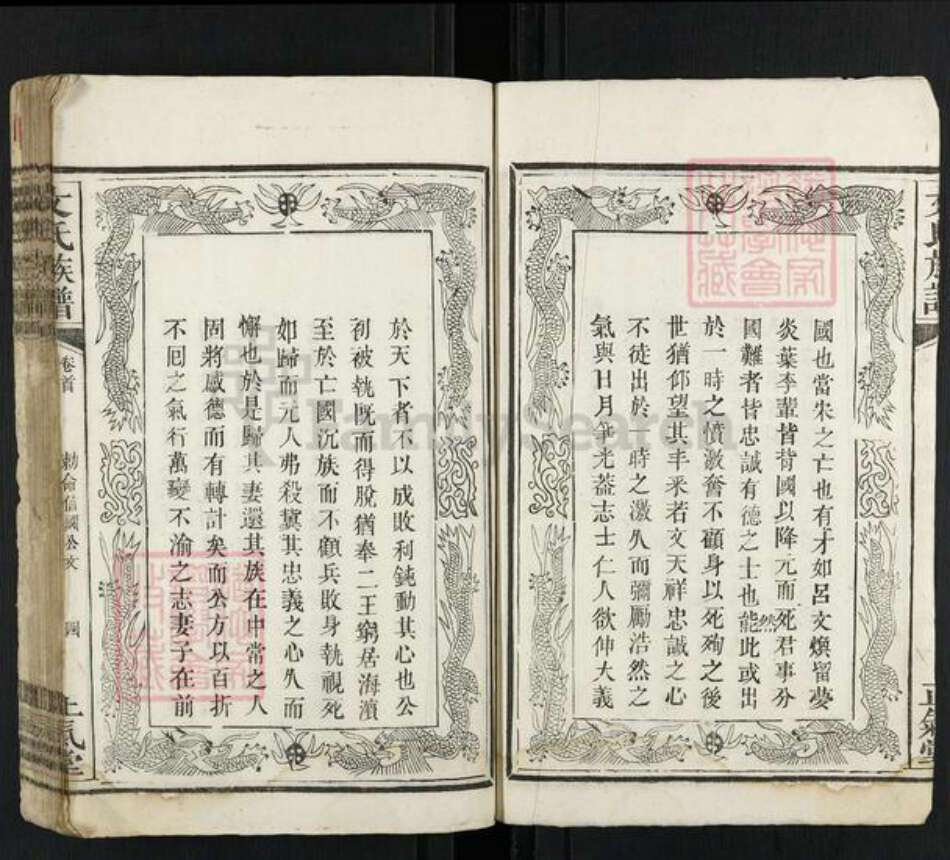 國也當宋之亡也有才如呂文煥留夢
炎葉李輩皆背國以降元而死君事分
國難者皆忠誠有德之士也然能此或出
於一時之憤激奮不顧身以死殉之後
世猶仰望其丰采若文天祥忠誠之心
不徒出於一時之激久而彌勵浩然之
氣與日月爭光葢志士仁人欲伸大義
於天下者不以成敗利鈍動其心也公
初被執既而得脫猶奉二王窮居海濵
至於亡國沉族而不顧兵敗身執視死
如歸而元人弗殺冀其忠義之心久而
懈也於是歸其妻還其族在中常之人
固將感德而有轉計矣而公方以百折
不囘之氣行萬變不渝之志妻子在前
文氏族譜
卷首
勅命信國公文
四
正氣堂
文氏族譜
正氣堂
FamilySearch